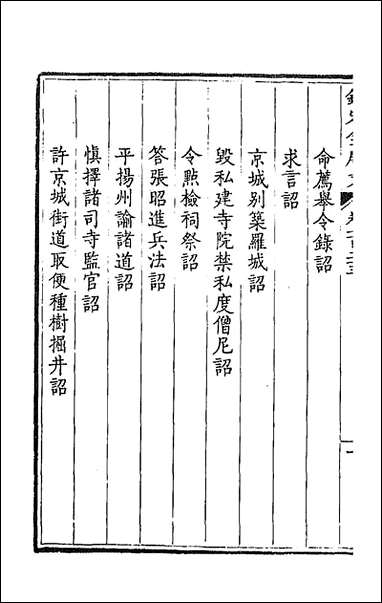 命薦舉令錄詔
求言詔
京城別築羅城詔
毀私建寺院禁私度僧尼詔
令㸃檢祠祭詔
答張昭進兵法詔
平揚州諭諸道詔
慎擇諸司寺監官詔
許京城街道取便種樹掘井詔